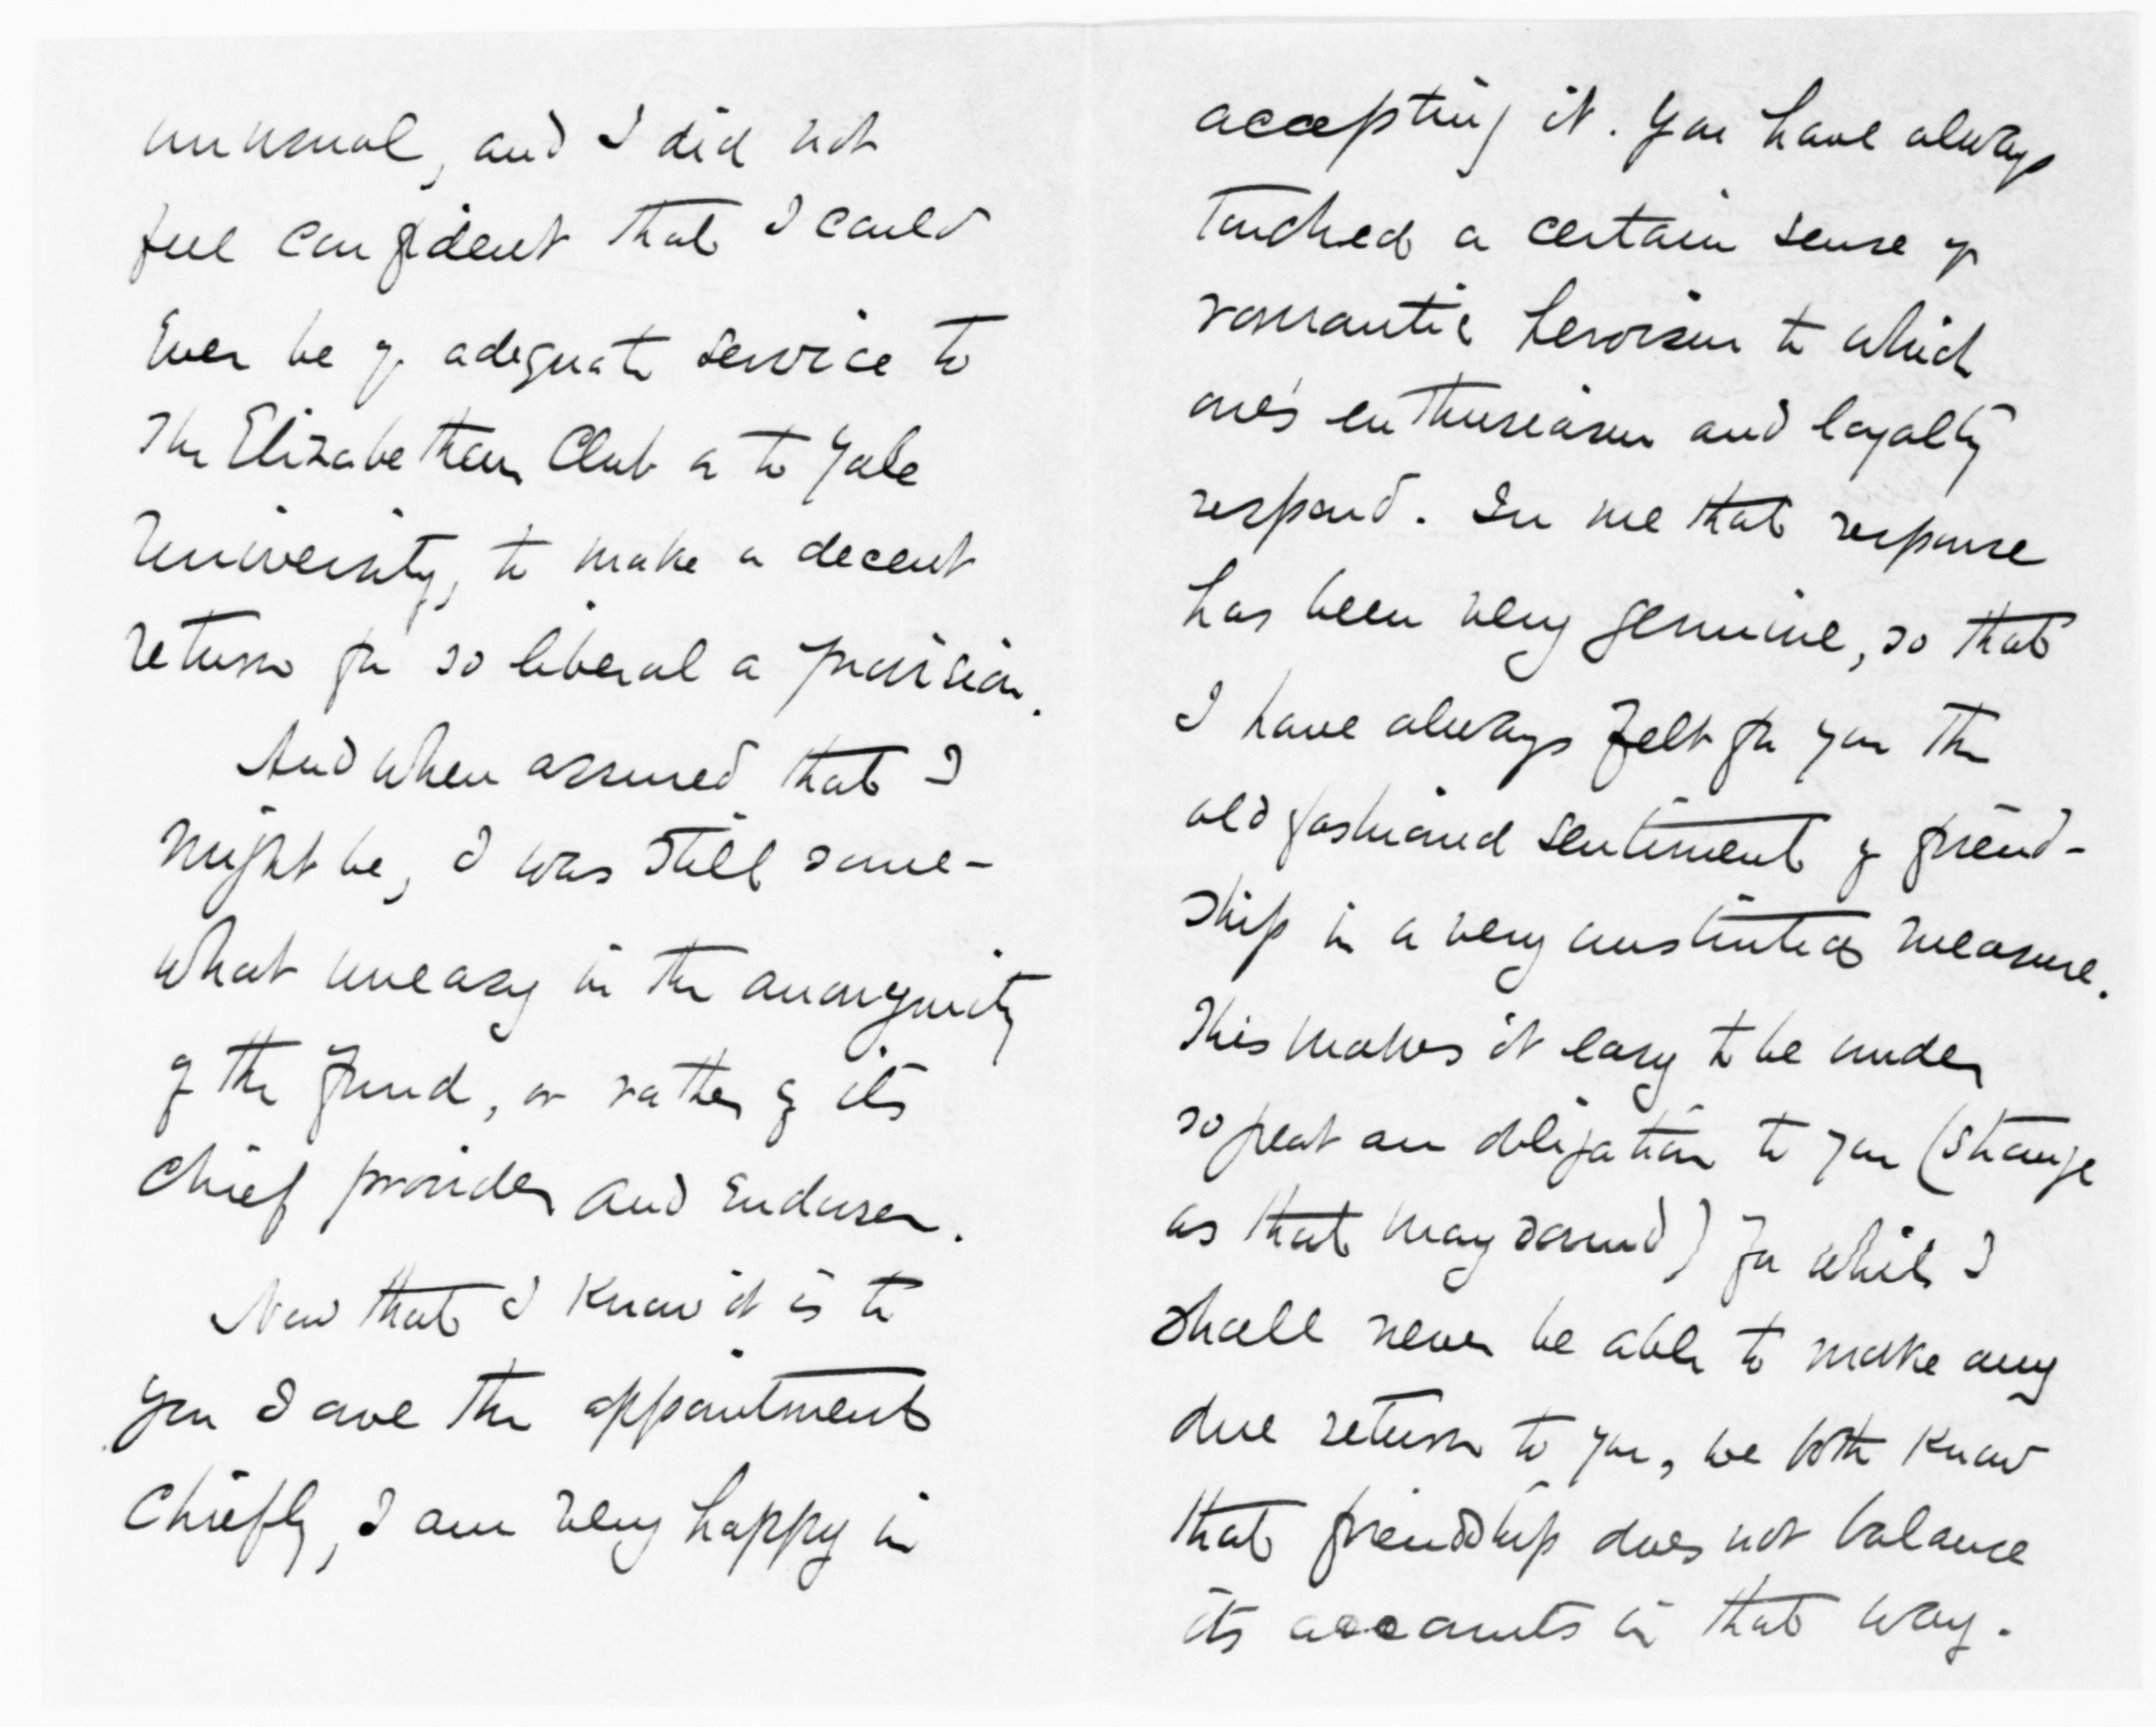 unusual, and I did not
feel confident that I could
Ever be of adequate service to
The Elizabethan Club or to Yale
University, to make a decent
return for so liberal a provision.
And when assured that I
might be, I was still some-
what uneasy in the anonymity
of the fund, or rather of its
Chief provider and Endorser.
Now that I know it is to
you I owe the appointment
Chiefly, I am very happy in
accepting it. You have always
touched a certain sense of
romantic heroism to which
one's enthusiasm and loyalty
respond. In me that response
has been very genuine, so that
I have always felt for you the
old fashioned sentiment of friend-
ship in a very unstinted measure.
This makes it easy to be under
so great an obligation to you (strange
as that may sound) for while I
shall never be able to make any
due return to you, we both know
that friendship does not balance
its accounts in that way.